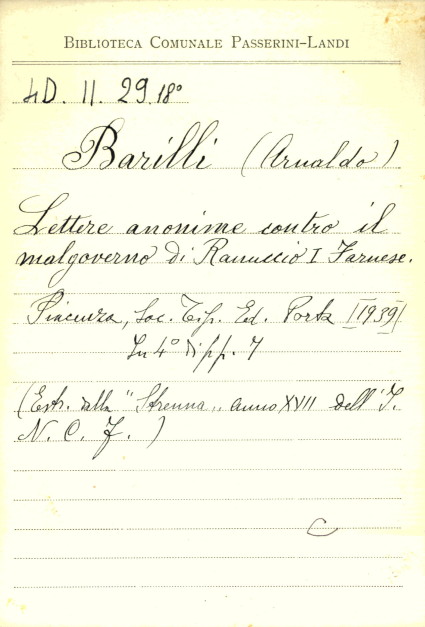 BIBLIOTECA COMUNALE PASSERINI-LANDI
4D. II. 29.18°
Barilli (Arnaldo)
Lettere anonime contro il
malgoverno di Ranuccio I Farnese.
Piacenza, Soc. Tip. Ed. Porta [1939]
In 4° di pp. 7
(Estr. dalla "Strenna" anno XVII dell'I.
N. C. F.)
C